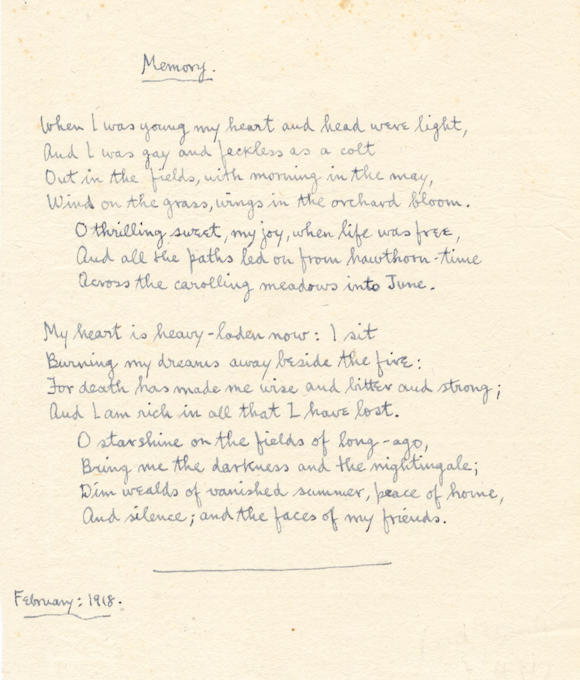 Memory.
When I was young my heart and head were light,
And I was gay and feckless as a colt
Out in the fields, with morning in the may,
Wind on the grass, wings in the orchard bloom.
O thrilling sweet, my joy, when life was free,
And all the paths led on from hawthorn-time
Across the carolling meadows into June.
My heart is heavy-laden now: I sit
Burning my dreams away beside the fire:
For death has made me wise and bitter and strong;
And I am rich in all that I have lost.
O starshine on the fields of long-ago,
Bring me the darkness and the nightingale;
Dim wealds of vanished summer, peace of home,
And silence; and the faces of my friends.
February: 1918.